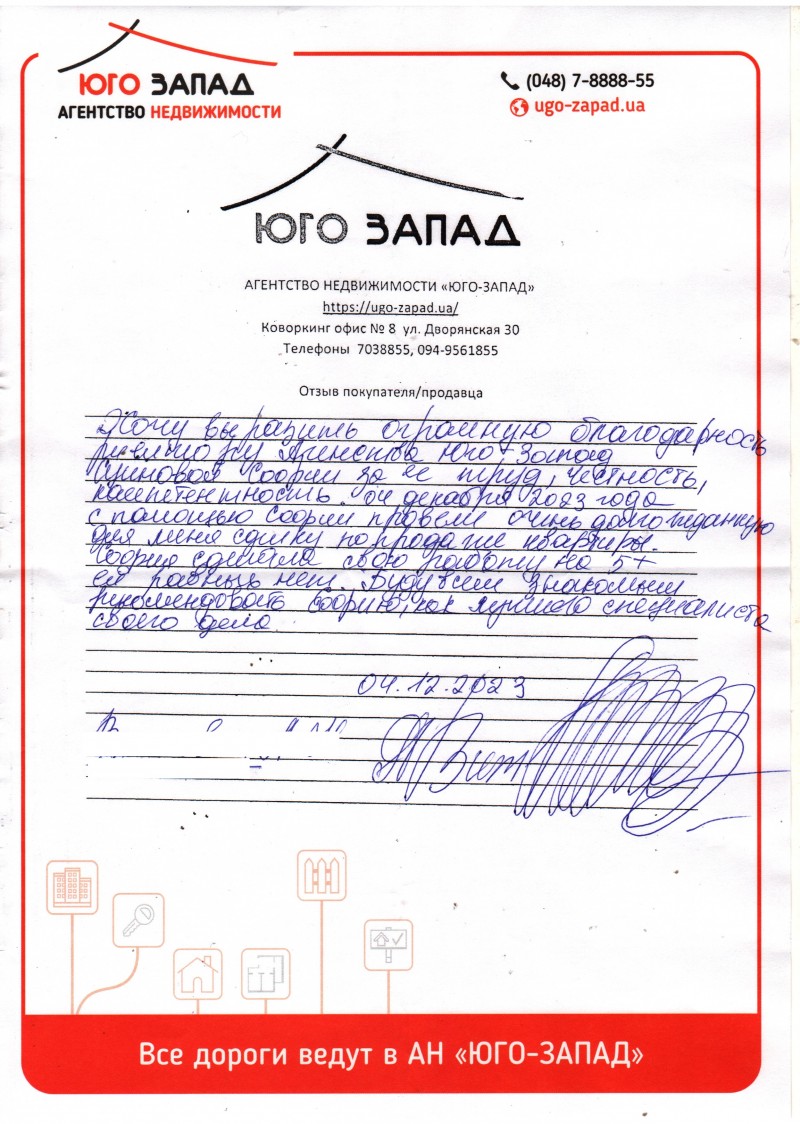 ЮГО ЗАПАД
АГЕНТСТВО НЕДВИЖИМОСТИ
(048) 7-8888-55
ugo-zapad.ua
ЮГО ЗАПАД
АГЕНТСТВО НЕДВИЖИМОСТИ «ЮГО-ЗАПАД»
https://ugo-zapad.ua/
Коворкинг офис № 8 ул. Дворянская 30
Телефоны 7038855, 094-9561855
Отзыв покупателя/продавца
Хочу выразить огромную благодарность
риелтору Агенства Юго-Запад
Софии за ее труд, честность,
кампетентность. 04 декабря 2023 года
с помощью Софии провели очень долгожданную
для меня сделку по продаже квартиры.
София сделала свою работу на 5+
ей равных нет. Буду всем знакомым
рекомендовать Софию, как лучшего специалиста
своего дела.
04.12.2023
Все дороги ведут в АН «ЮГО-ЗАПАД»